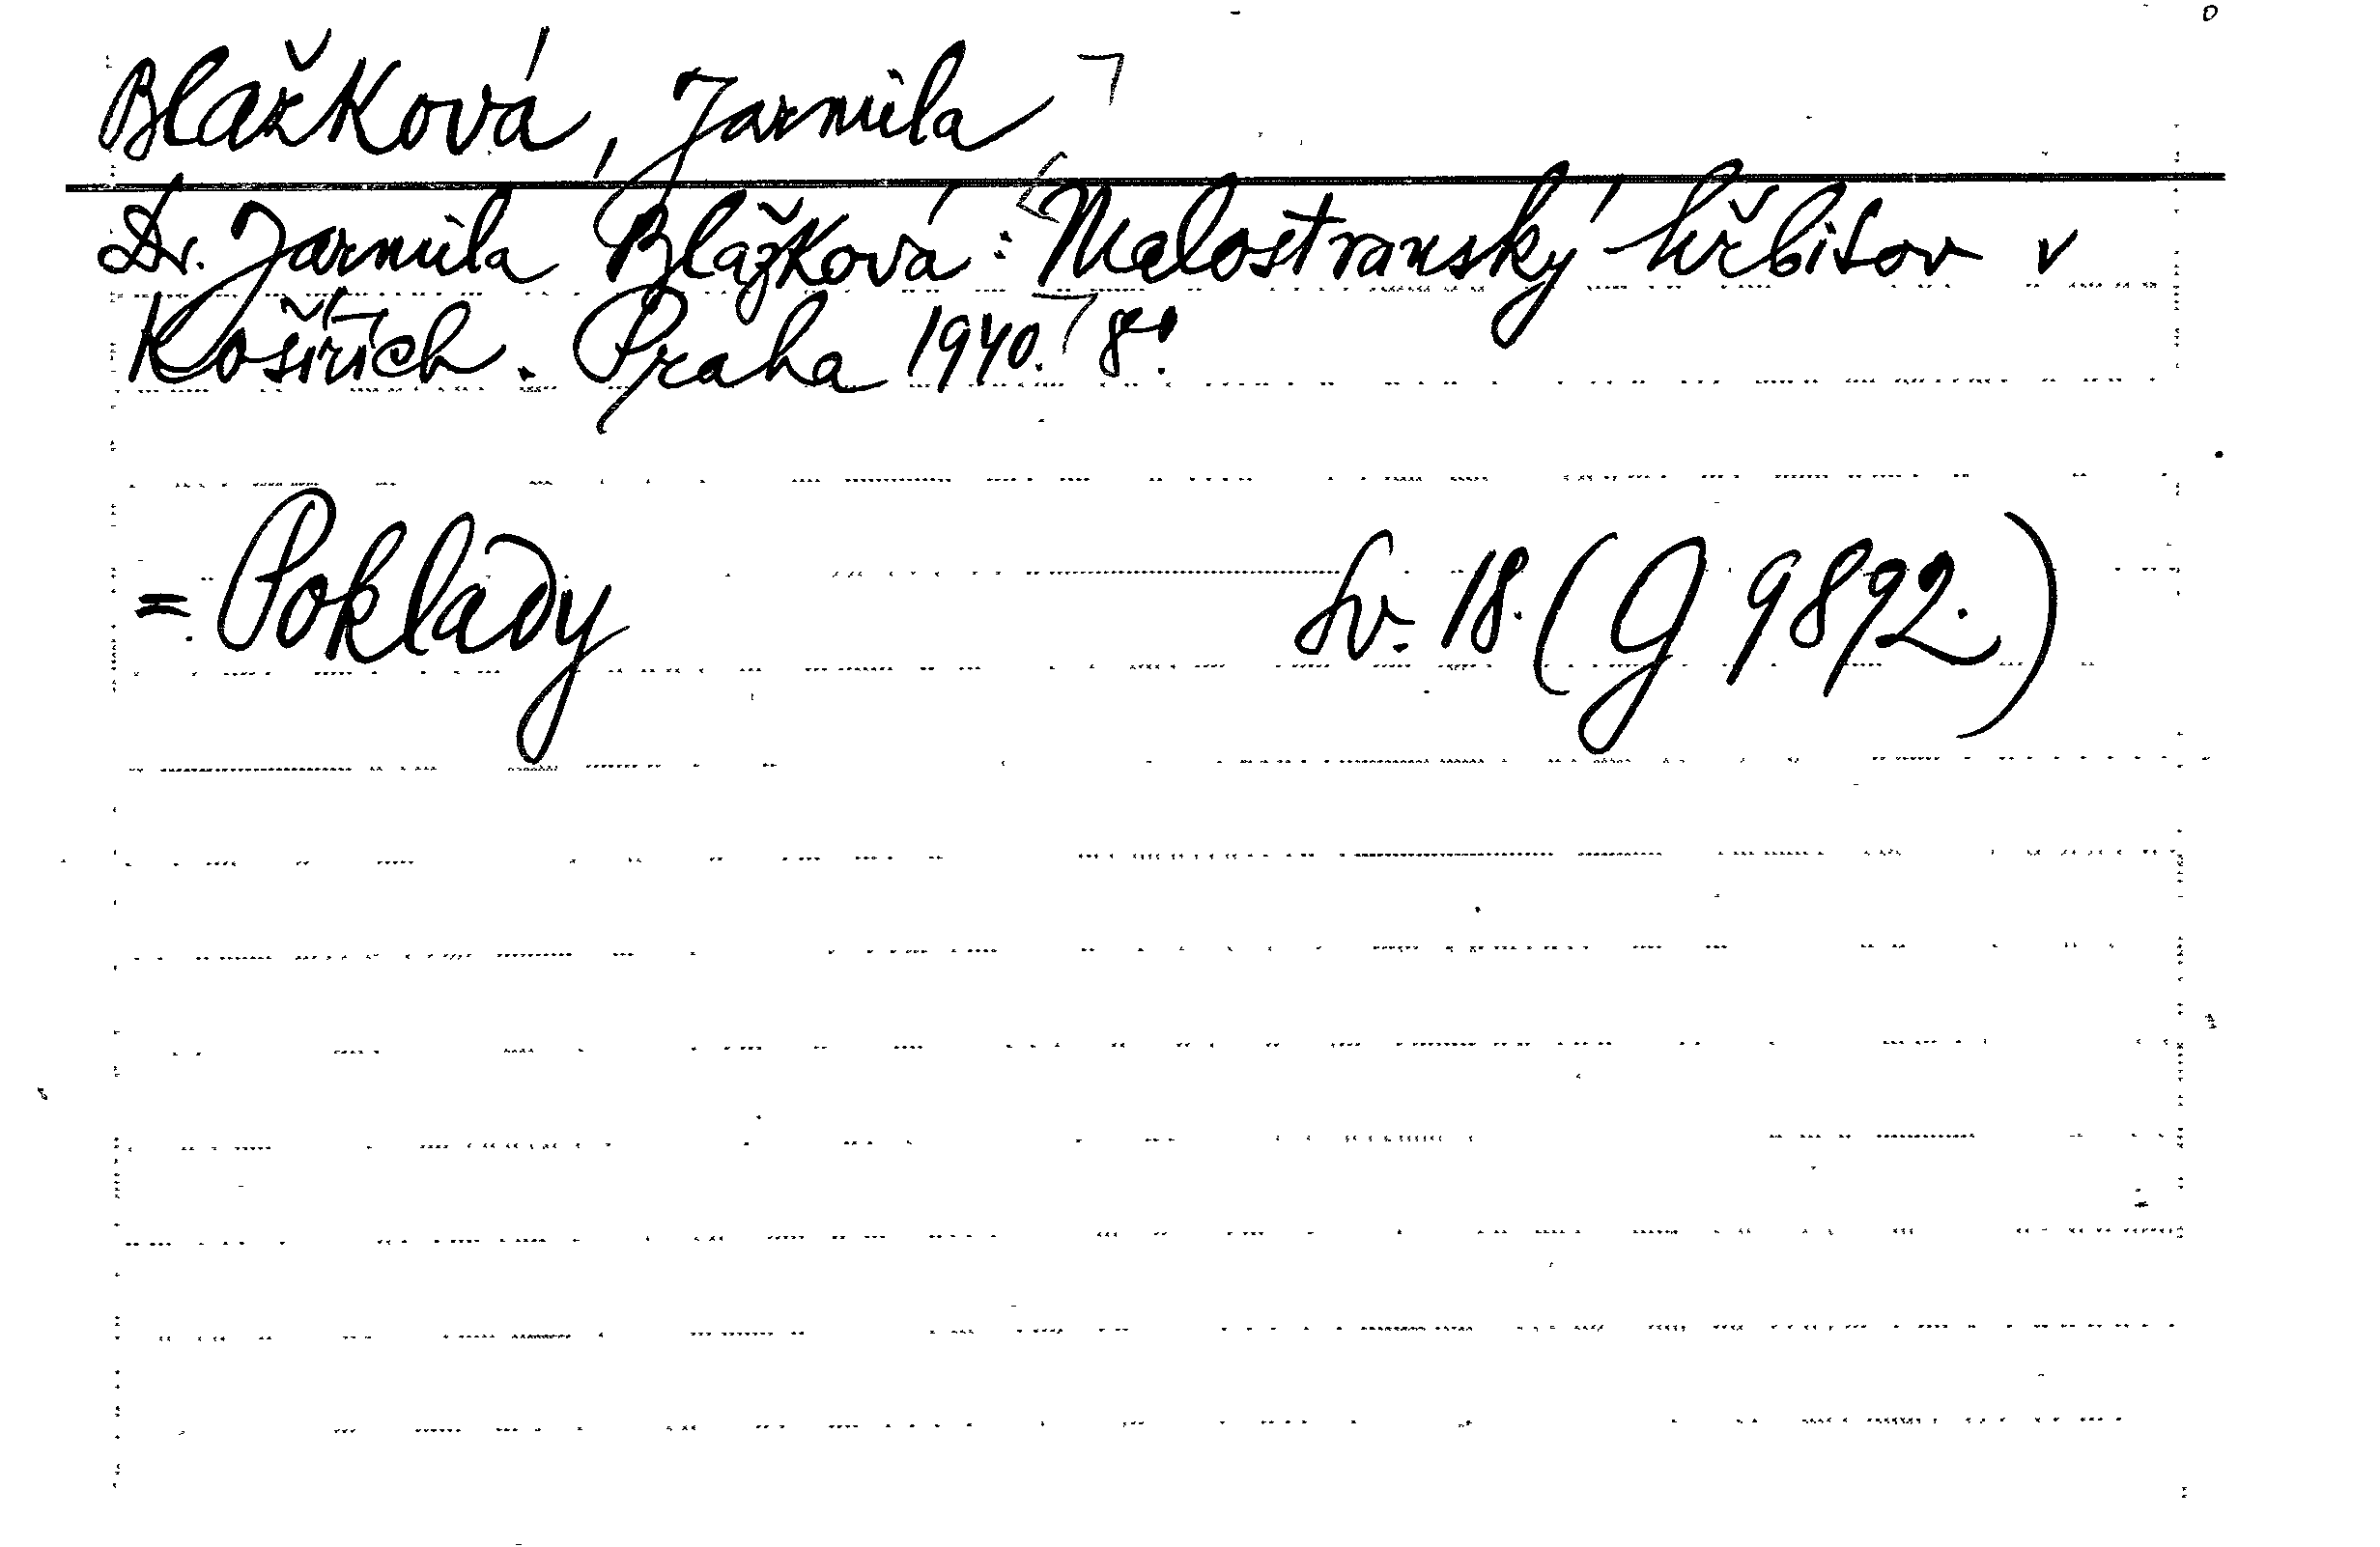 Blažková, Jarmila
Dr. Jarmila Blažková: Malostranský hřbitov v
Košířích. Praha 1940. 8°.
= Poklady Sv. 18. (G 9892.)